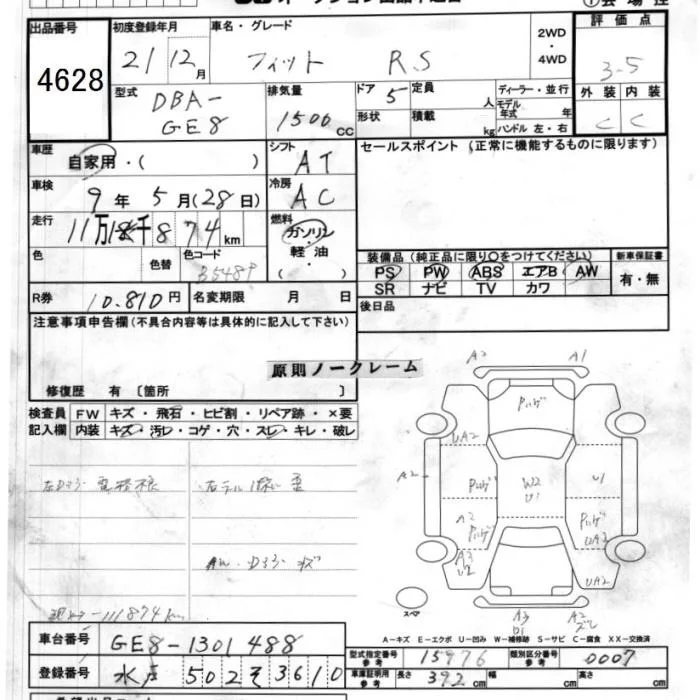 出品番号
4628
初度登録年月
21 12月
車名・グレード
フィット RS
2WD
・
4WD
評価点
3-5
外装 内装
C C
型式
DBA-
GE8
排気量
1500cc
ドア 5
定員 人
形状
積載 kg
ディーラー・並行
モデル年式 年
ハンドル 左・右
車歴
自家用・( )
シフト
AT
セールスポイント (正常に機能するものに限ります)
車検
9年 5月(28日)
冷房
AC
走行
11万1千874km
燃料
ガソリン・軽油・( )
色
色替
色コード
R券
10.810円
名変期限 月 日
装備品 (純正品に限り○をつけてください)
PS PW ABS エアB AW
SR ナビ TV カワ
新車保証書
有・無
後日品
注意事項申告欄 (不具合内容等は具体的に記入して下さい)
原則ノークレーム
修復歴 有 〔箇所 〕
検査員記入欄
FW キズ・飛石・ヒビ割・リペア跡・×要
内装 キズ・汚レ・コゲ・穴・スレ・キレ・破レ
A2 A1
UA2
A2
W2
U1
U1
A2
UA2
A3
U2
UA2
スペア
A3
A2
111874km
A-キズ E-エクボ U-凹み W-補修跡 S-サビ C-腐食 XX-交換済
車台番号
GE8-1301488
登録番号
水戸 502 そ 3610
型式指定番号 参考 15976
類別区分番号 参考 0007
車庫証明用 参考 長さ 392cm 幅 cm 高さ cm